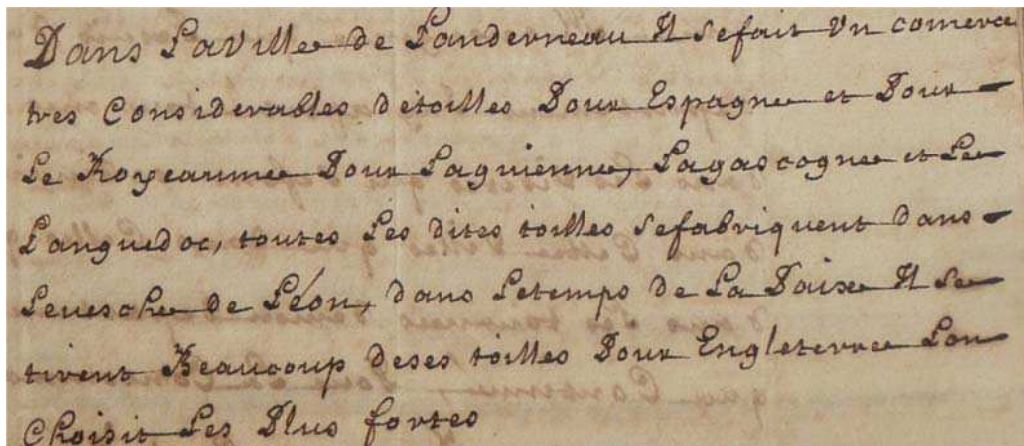 Dans Laville de Landerneau Il sefait Vn comerce
tres Considerables detoilles Pour Espagne et Pour
Le Royeaume Pour Laguienne, Lagascogne et Le
Languedoc, toutes Les dites toilles sefabriquent dans
Levesche de Léon, dans Letemps de La Paix Il se
tirent Beaucoup deses toilles Pour Engleterre Lon
Choisit Les Plus fortes